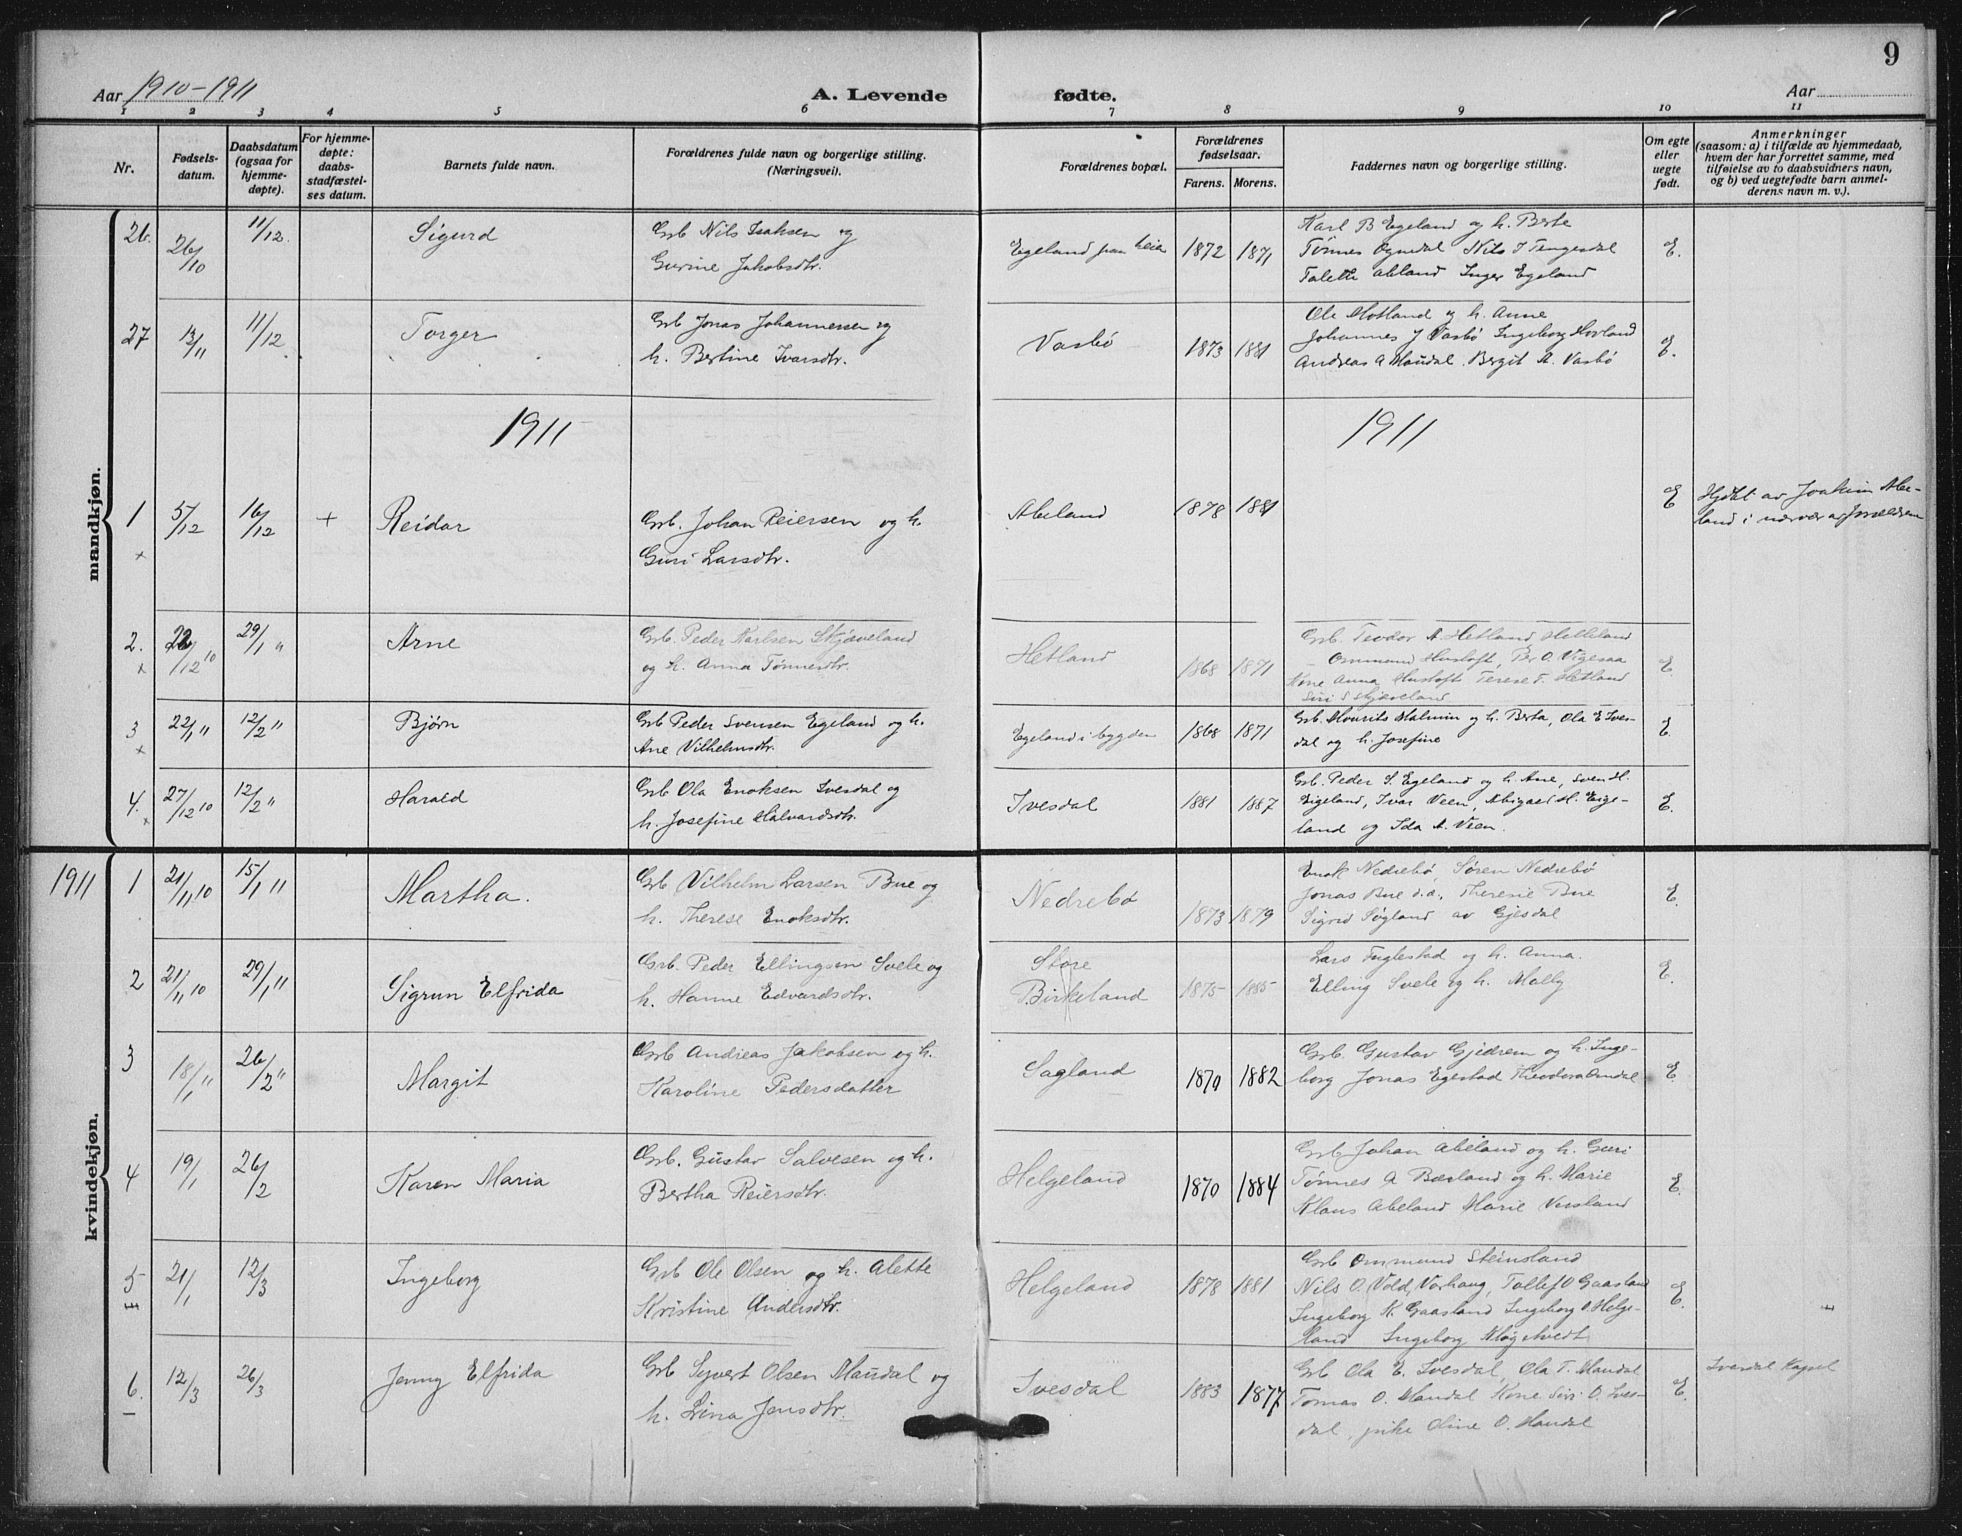 9
Aar 1910-1911
A. Levende fødte.
Aar
1 2 3 4 5 6 7 8 9 10 11
Nr.
Fødsels-
datum.
Daabsdatum
(ogsaa for
hjemme-
døpte).
For hjemme-
døpte:
daabs-
stadfæstel-
ses datum.
Barnets fulde navn.
Forældrenes fulde navn og borgerlige stilling.
(Næringsvei).
Forældrenes bopæl.
Forældrenes
fødselsaar.
Farens. Morens.
Faddernes navn og borgerlige stilling.
Om egte
eller
uegte
født.
Anmerkninger
(saasom: a) i tilfælde av hjemmedaab,
hvem der har forrettet samme, med
tilføielse av to daabsvidners navn,
og b) ved uegtefødte barn anmel-
derens navn m. v.).
mandkjøn.
26. 26/10 11/12. Sigurd
Grb Nils Isaksen og
Gurine Jakobsdtr.
Egeland paa heia 1872 1871
Karl B Egeland og h. Berte
Tønnes Ogndal Nils J Tengesdal
Talette Abeland Inger Egeland
E.
27 13/11 11/12 Torger
Grb Jonas Johannessen og
h. Bertine Ivarsdtr.
Vasbø 1873 1881
Ole Motland og h. Anne
Johannes J Vasbø Ingeborg Hovland
Andreas A Maudal. Bergit A. Vasbø
E.
1911 1911
1 5/12 16/12 + Reidar
Grb. Johan Reiersen og h.
Guri Larsdtr.
Abeland 1878 1881
E
Hjdbt av Joakim Abe-
land i nærvær av forældrene
2. 22/12 10 29/1 " Arne
Grb. Peder Karlsen Skjæveland
og h. Anna Tønnesdtr.
Hetland 1868 1871
Grb. Teodor A. Hetland, Helleland
Ommund Husloft, Per O. Vigesaa
Kone Anna Husloft Terese T. Hetland
Siri S Skjæveland
E
3 22/1 11 12/2 11 Bjørn
Grb Peder Svensen Egeland og h.
Ane Vilhelmsdtr.
Egeland i bygden 1868 1871
Grb. Mourits Malmin og h. Berta, Ola E Ives-
dal og h. Josefine
E
4. 27/12 10 12/2 " Harald
Grb Ola Enoksen Ivesdal og
h. Josefine Halvardsdtr.
Ivesdal 1881 1887
Grb. Peder S. Egeland og h. Ane, Sven H.
Eigeland, Ivar Veen, Abigael H. Eige-
land og Ida A. Veen.
E.
kvindekjøn.
1911 1 21/11 10 15/1 11 Martha.
Grb Vilhelm Larsen Bue og
h. Therese Enoksdtr.
Nedrebø 1873 1879
Enok Nedrebø, Søren Nedrebø
Jonas Bue d.æ., Therese Bue
Sigrid Søyland av Gjesdal
E.
2 21/11 10 29/1 11 Sigrun Elfrida
Grb. Peder Ellingsen Svele og
h. Hanne Edvardsdtr.
Store
Birkeland 1875 1885
Lars Fuglestad og h. Anna.
Elling Svele og h. Molly
E.
3 18/1 11 26/2 " Margit
Grb Andreas Jakobsen og h.
Karoline Pedersdatter
Sagland 1870 1882
Grb. Gustav Gjedrem og h. Inge-
borg Jonas Egestad Theodora Omdal
E
4 19/1 26/2 Karen Maria
Grb. Gustav Salvesen og h.
Bertha Reiersdtr.
Helgeland 1870 1884
Grb Johan Abeland og h. Guri
Tønnes A Bærland og h. Marie
Klaus Abeland Marie Versland
E.
5 21/1 12/3 Ingeborg
Grb Ole Olsen og h. Alette
Kristine Andersdtr.
Helgeland 1878 1881
Grb Ommund Steinsland
Nils O. Vold, Varhaug, Tollef O Gaasland
Ingeborg K. Gaasland Ingeborg O. Helge-
land Ingeborg Kløgetvedt
E.
6. 12/3 26/3 Jenny Elfrida
Grb Syvert Olsen Maudal og
h. Lina Jensdtr.
Ivesdal 1883 1877
Grb Ola E. Ivesdal, Ola T. Maudal
Tomas O. Maudal Kone Siri O. Ives-
dal, pike Oline O. Maudal
E.
Ivesdal Kapel